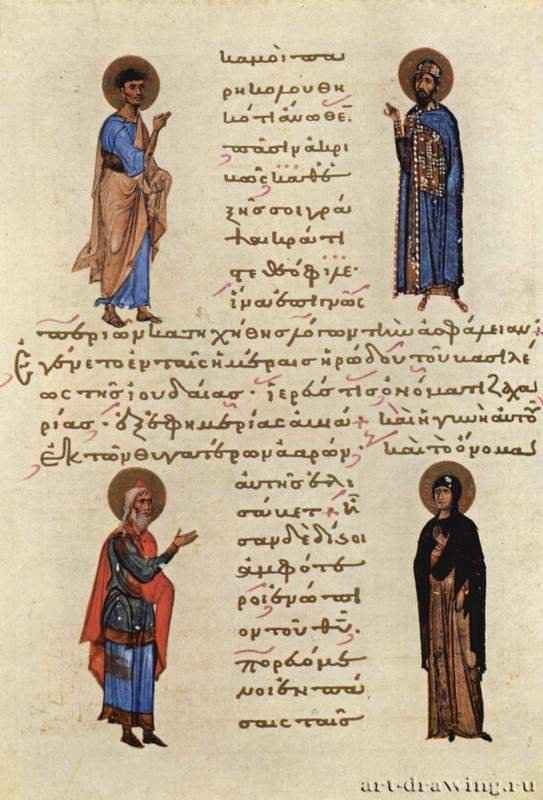 κἀμοὶ πα
ρηκολουθη
κότι ἄνωθε̅
πᾶσιν ἀκρι
βῶς καθε
ξῆς σοι γρά
ψαι κρατι
στε θεόφιλε·
ἵνα ἐπιγνῶς
περὶ ὧν κατηχήθης λόγων τὴν ἀσφάλειαν·
Ἐγένετο ἐν ταῖς ἡμέραις ἡρώδου τοῦ βασιλέ
ως τῆς ἰουδαίας· ἱερεύς τις ὀνόματι ζαχα
ρίας· ἐξ ἐφημερίας ἀβιά· καὶ ἡ γυνὴ αὐτοῦ
ἐκ τῶν θυγατέρων ἀαρών· καὶ τὸ ὄνομα
αὐτῆς ἐλι
σάβετ· ἦ
σαν δὲ δίκαιοι
ἀμφότε
ροι ἐνώπι
ον τοῦ θ̅υ̅·
πορευόμε
νοι ἐν πά
σαις ταῖς
art-drawing.ru